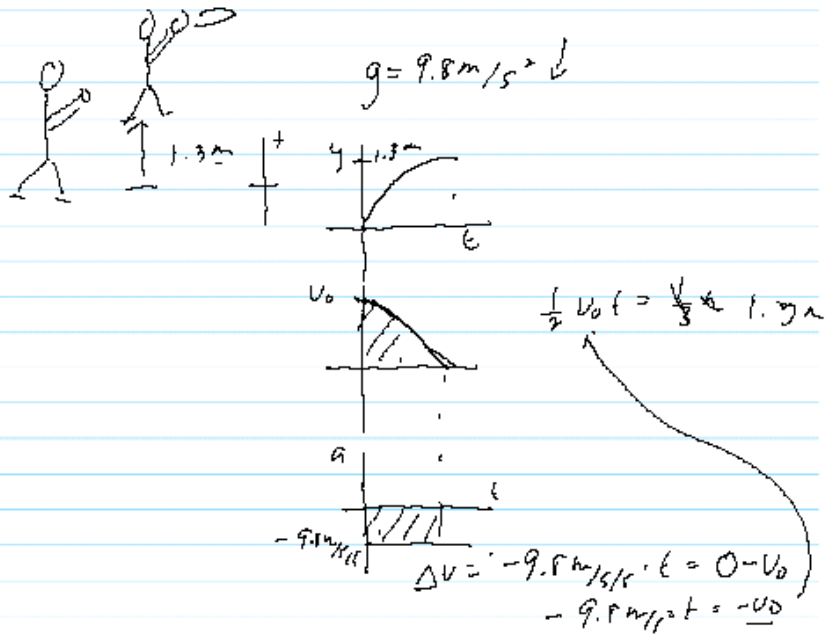 g = 9.8 m/s² ↓
1.3 m
+
y
1.3 m
t
v₀
½ v₀ t = 1.3 m
a
t
- 9.8 m/s/s
Δv = -9.8 m/s/s · t = 0 - v₀
- 9.8 m/s² t = -v₀